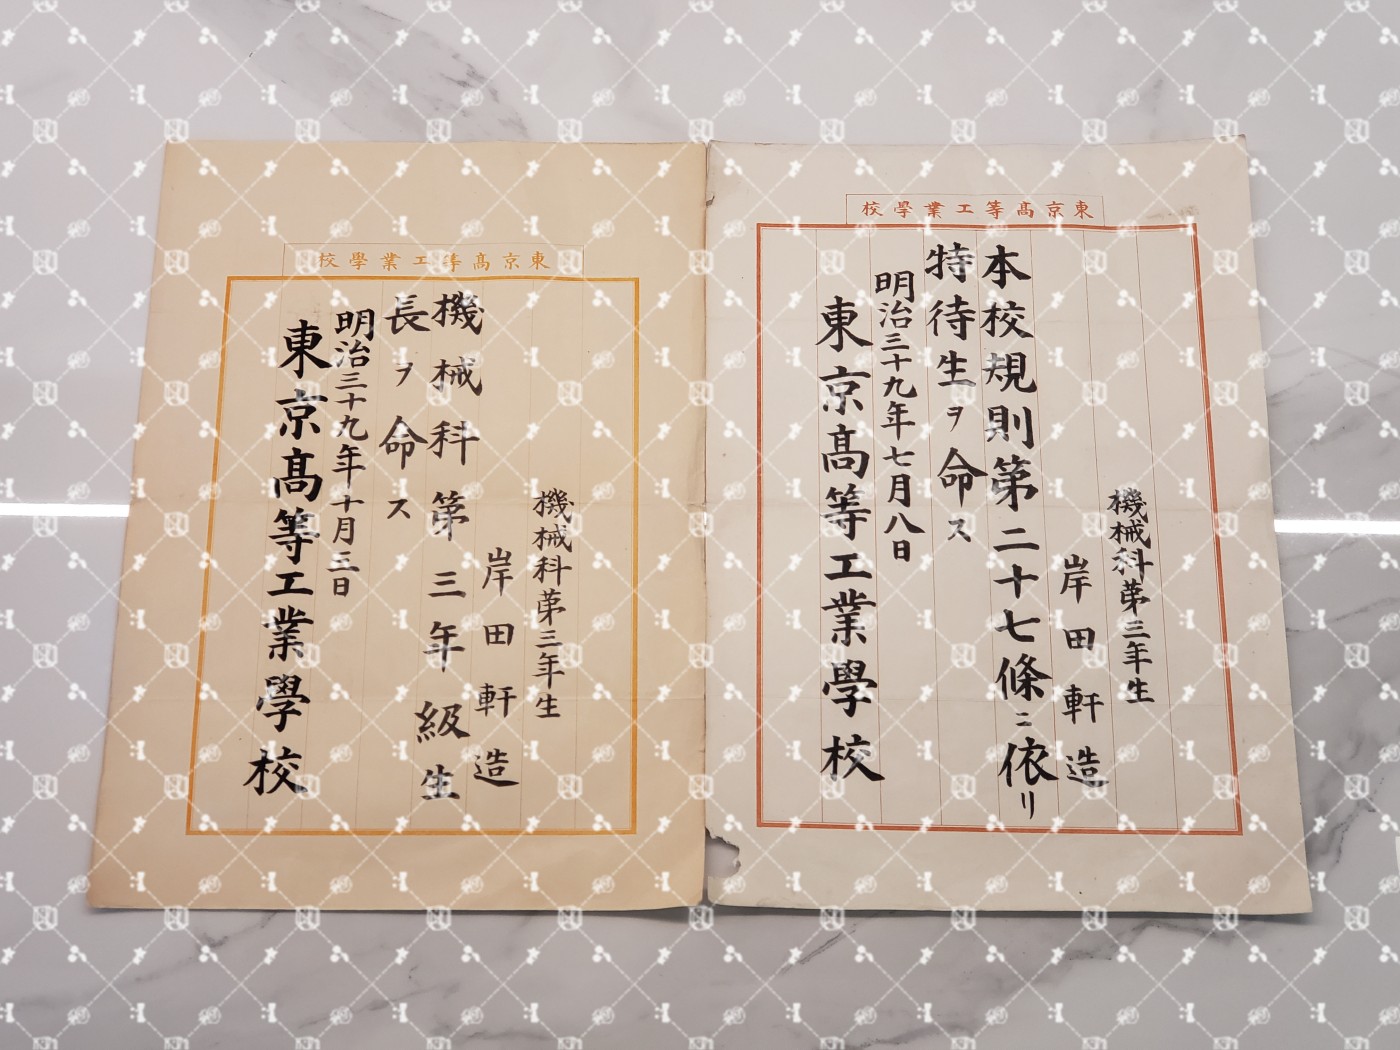 東京髙等工業學校
機械科第三年生
岸田軒造
本校規則第二十七條ニ依リ
特待生ヲ命ス
明治三十九年七月八日
東京髙等工業學校
東京髙等工業學校
機械科第三年生
岸田軒造
機械科第三年級生
長ヲ命ス
明治三十九年十月三日
東京髙等工業學校